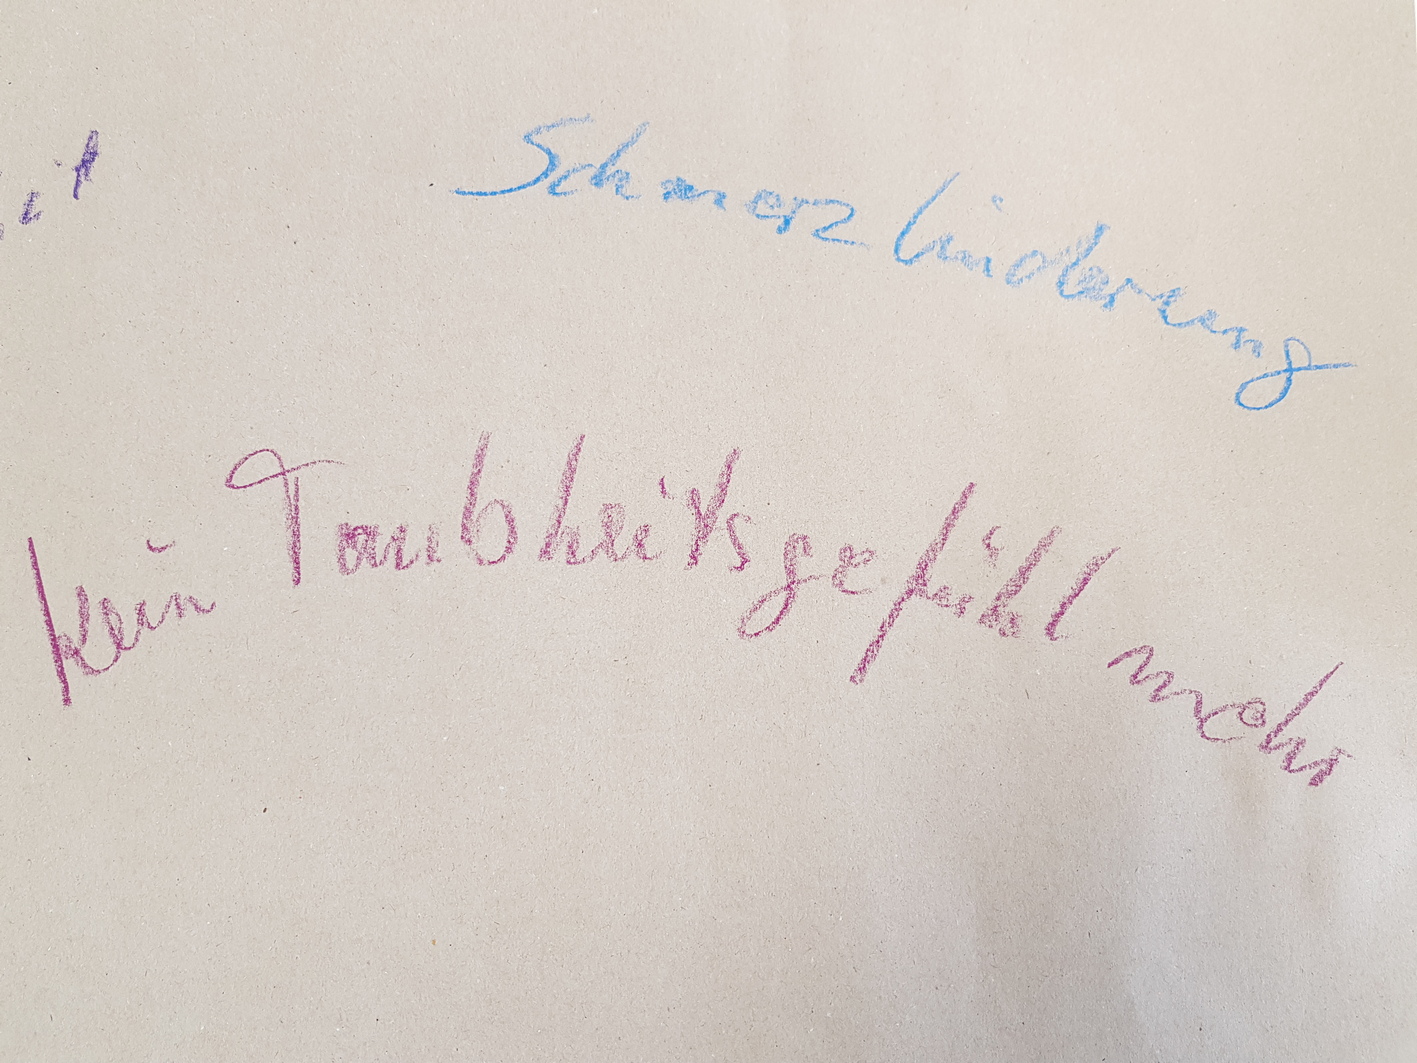 Schmerzlinderung
kein Taubheitsgefühl mehr